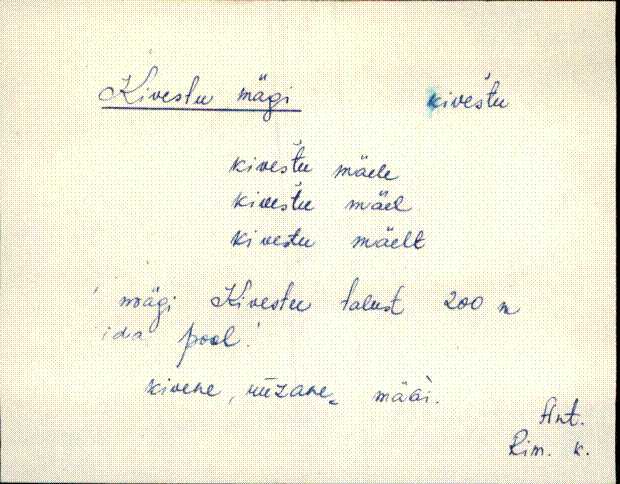 Kivestu mägi kiveštu
kiveštu mäele
kiveštu mäel
kivestu mäelt
' mägi Kivestu talust 200 m
ida pool.'
kivene, mäǵi.
Ant.
Rim. k.